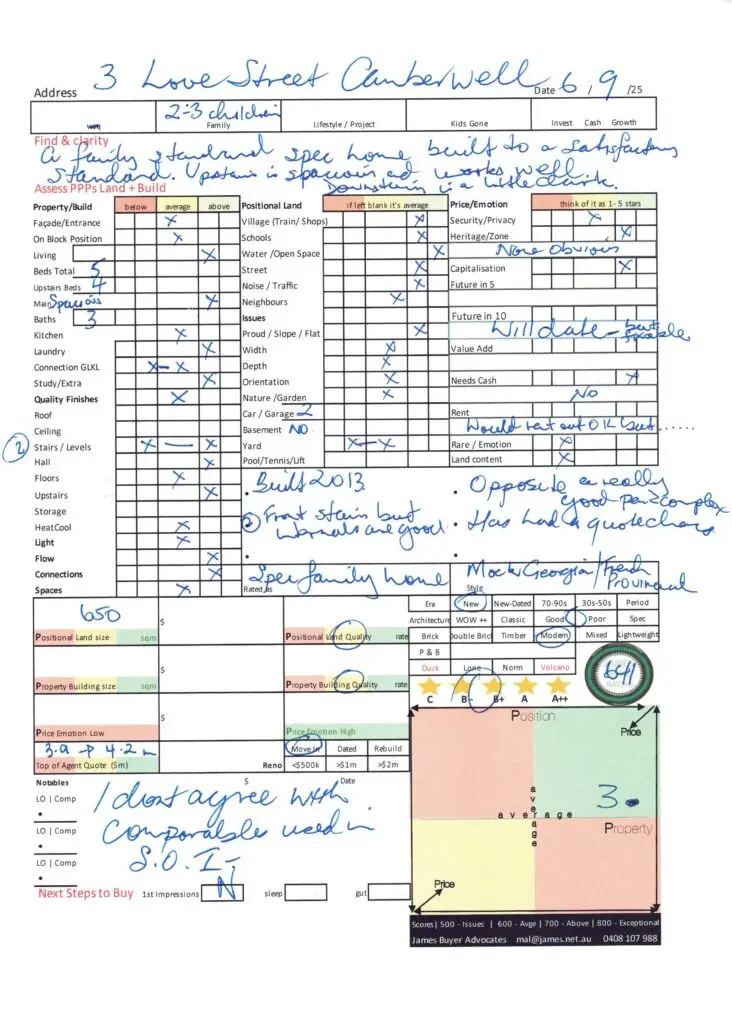 Address 3 Love Street Canberwell Date 6 / 9 /25
2-3 children
Family Lifestyle / Project Kids Gone Invest Cash Growth
Find & clarity
A family standard spec home built to a satisfactory
standard. Upstairs is spacious and works well.
Downstairs is a little dark.
Assess PPPs Land + Build
Property/Build below average above Positional Land if left blank it's average Price/Emotion think of it as 1- 5 stars
Façade/Entrance X Village (Train/ Shops) X Security/Privacy X
On Block Position X Schools X Heritage/Zone X
Living X Water /Open Space X None Obvious
Beds Total 5 Street X Capitalisation X
Upstairs Beds 4 Noise / Traffic X Future in 5
Main Spacious X Neighbours X
Baths 3 Issues Future in 10
Kitchen X Proud / Slope / Flat X Will date - but fixable
Laundry X Width X Value Add
Connection GLKL X-X Depth X
Study/Extra X Orientation X Needs Cash X
Quality Finishes X Nature /Garden X No
Roof Car / Garage 2 Rent
Ceiling Basement NO Would rent out OK but......
2 Stairs / Levels X — X Yard X-X Rare / Emotion X
Hall X Pool/Tennis/Lift Land content X
Floors X
Upstairs X
Storage
HeatCool X
Light X
Flow X
Connections X
Spaces X
• Built 2013
2 Front stairs but
internals are good
•
• Opposite a really
good complex
• Has had a
•
Rated as Spec family home Style Mock Georgia/French
Provincial
650
Positional Land size sqm $ Positional Land Quality rate
Property Building size sqm $ Property Building Quality rate
Price Emotion Low $ Price Emotion High
3.9 → 4.2 m
Top of Agent Quote ($m)
Reno Move In Dated Rebuild
<$500k >$1m >$2m
Era New New-Dated 70-90s 30s-50s Period
Architecture WOW ++ Classic Good Poor Spec
Brick Double Brick Timber Modern Mixed Lightweight
P & B
Duck Lane Norm Volcano
641
C B- B+ A A++
Position
Price
average
average
3
Property
Price
Notables $ Date
LO | Comp
•
LO | Comp
•
LO | Comp
•
I dont agree with
comparables used in
S.O.I.
Next Steps to Buy 1st Impressions N sleep gut
Scores| 500 - Issues | 600 - Avge | 700 - Above | 800 - Exceptional
James Buyer Advocates mal@james.net.au 0408 107 988